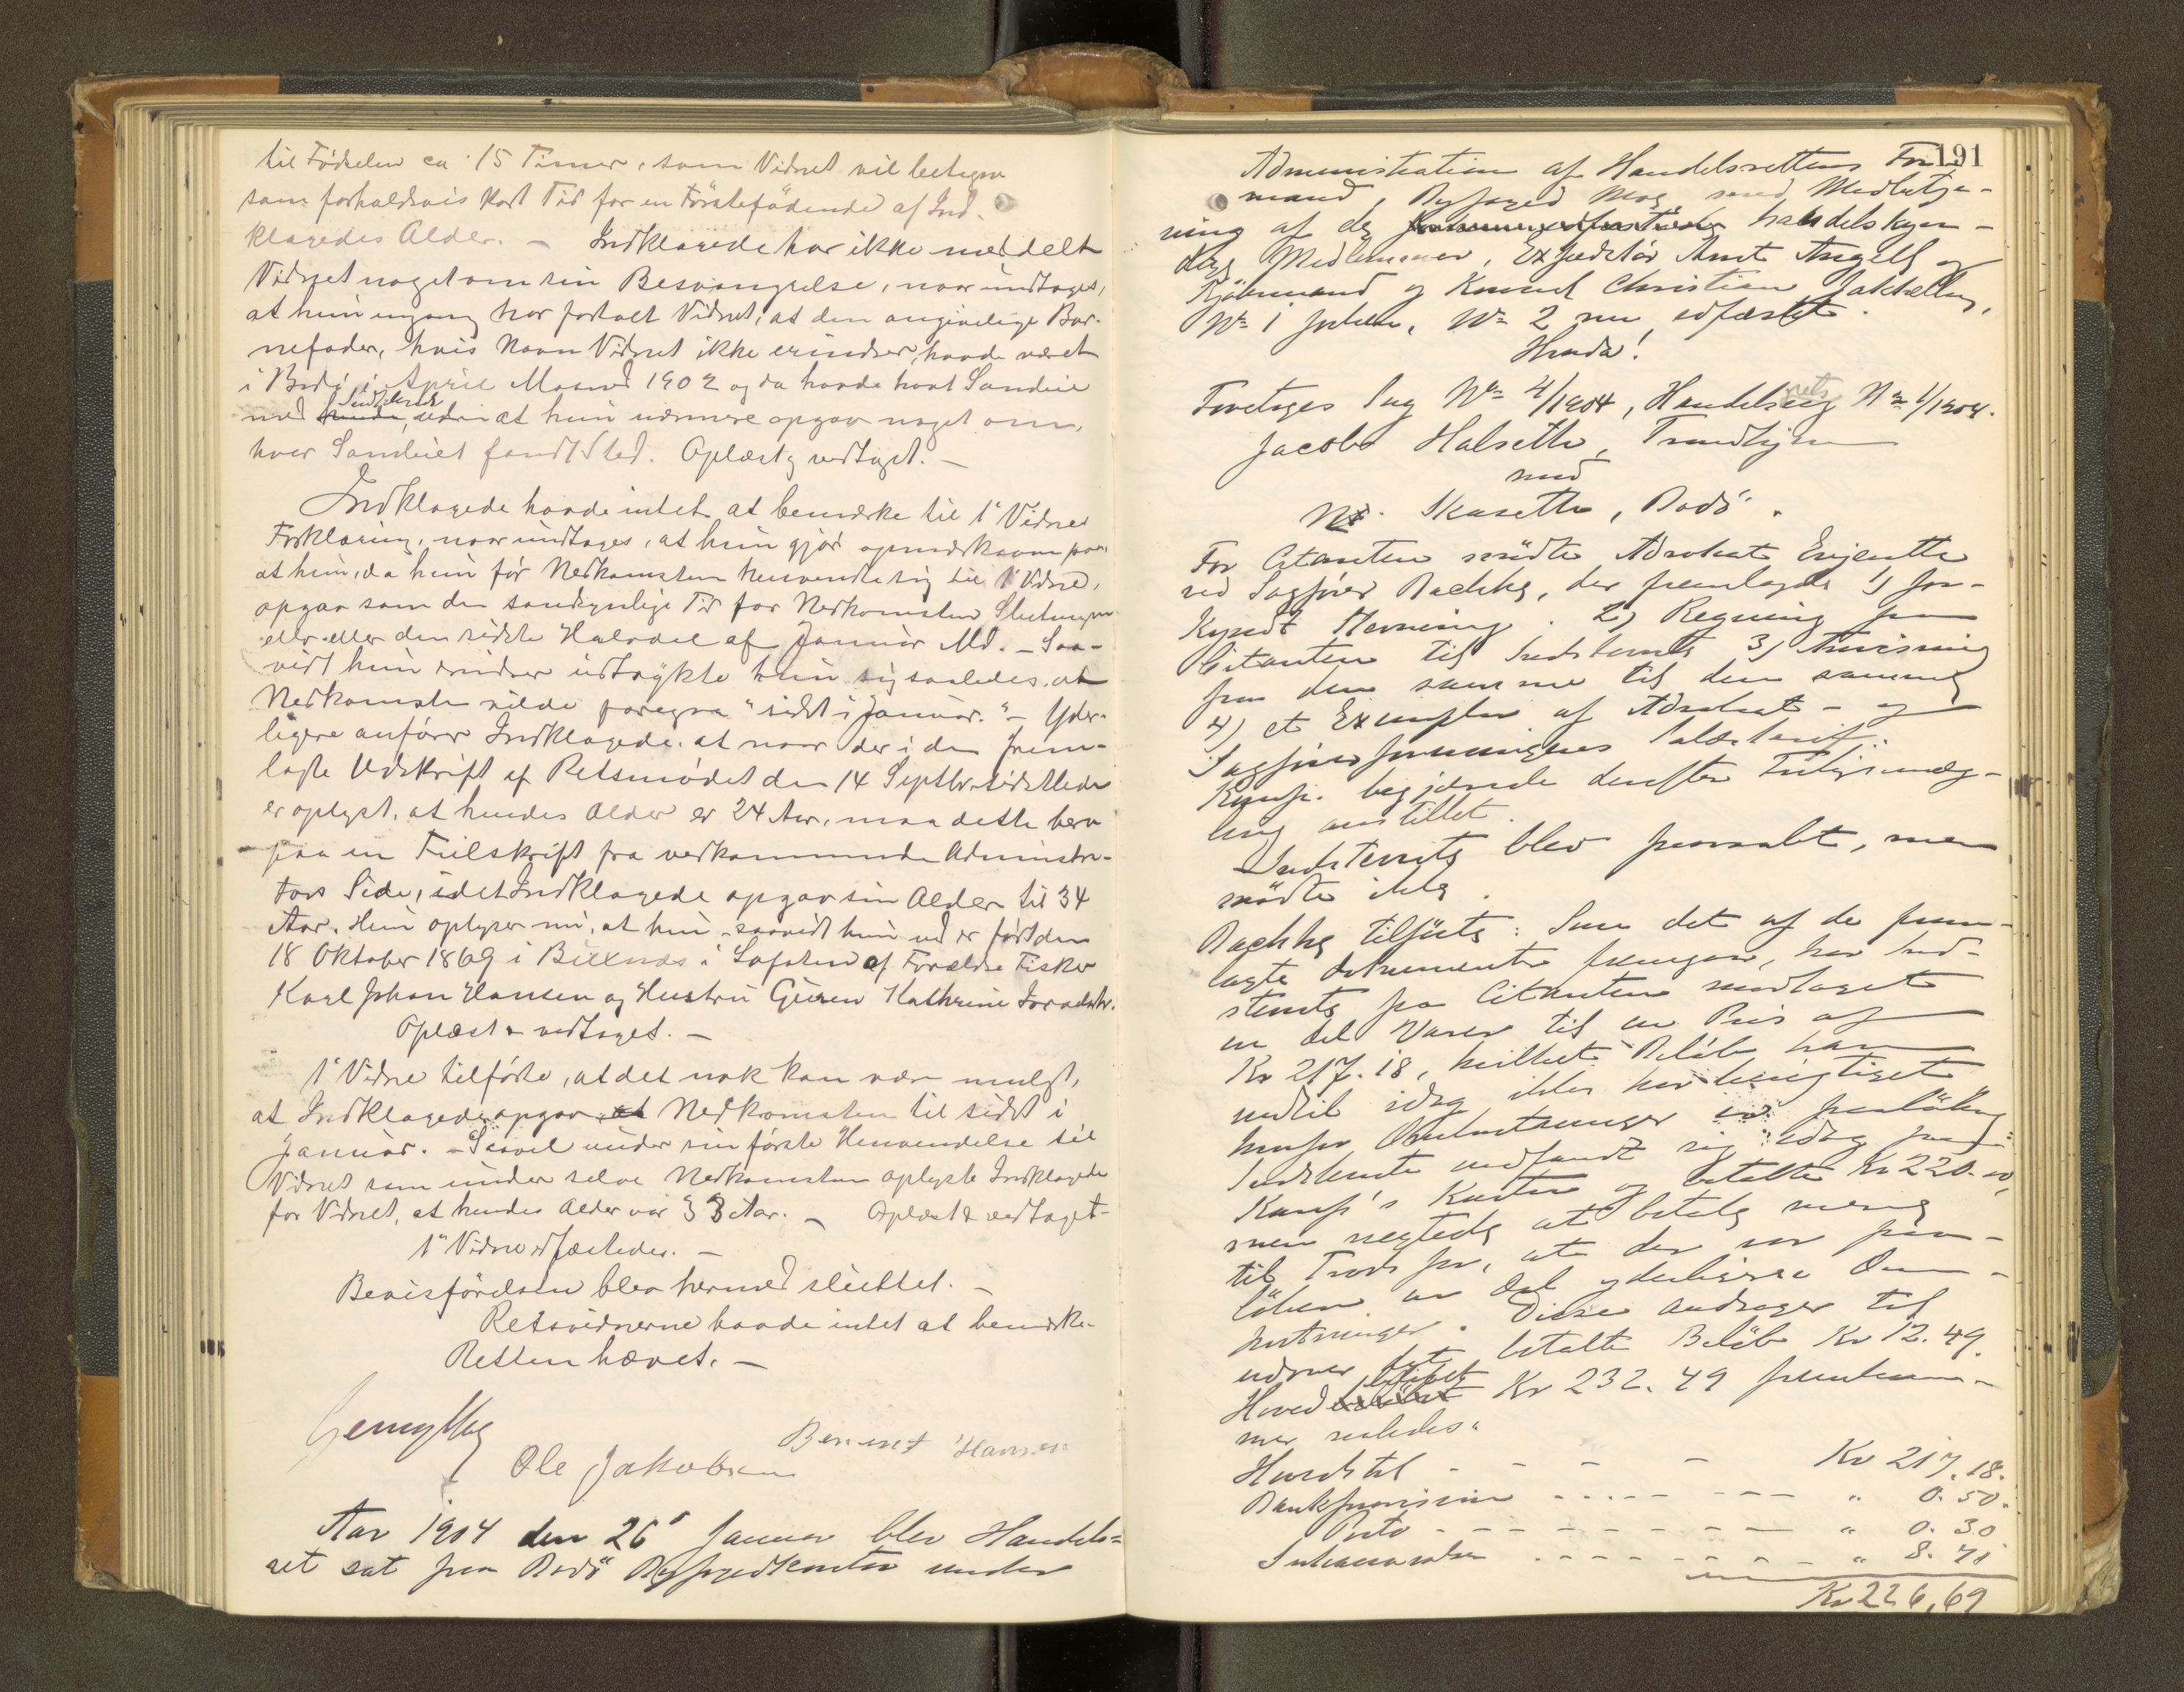 til Fødselen ca 15 Timer, som Vidnet vil betegne
som forholdsvis kort Tid for en Förstefödende af Ind-
klagedes Alder. – Indklagede har ikke meddelt
Vidnet noget om sin Besvangrelse, naar undtages,
at hun engang har fortalt Vidnet, at den angivelige Bar-
nefader, hvis Navn Vidnet ikke erindrer, havde været
i Bodö i April Maaned 1902 og da havde havt Samleie
med Indklagede, uden at hun nærmere opgav noget om,
hvor Samleiet fandt Sted. Oplæst & vedtaget. –
Indklagede havde intet at bemerke til 1' Vidnes
Forklaring, naar undtages, at hun gjör opmerksom paa,
at hun, da hun för Nedkomsten henvendte sig til 1' Vidne,
opgav som den sandsynlige Tid for Nedkomsten Slutningen
eller den sidste Halvdel af Januar Md. – Saa-
vidt hun erindrer udtrykte hun sig saaledes, at
Nedkomsten vilde foregaa "sidst i Januar." – Yder-
ligere anförer Indklagede, at naar der i den frem-
lagte Udskrift af Retsmödet den 14 Septbr. sidstleden
er oplyst, at hendes Alder er 24 Aar, maa dette bero
paa en Feilskrift fra vedkommende Administra-
tors Side, idet Indklagede opgav sin Alder til 34
Aar. Hun oplyser nu, at hun saavidt hun ved er født den
18 Oktober 1869 i Buxnæs i Lofoten af Forældre Fisker
Karl Johan Hansen og Hustru Guren Kathrine
Oplæst & vedtaget. –
1' Vidne tilförte, at det nok kan være muligt,
at Indklagede opgav Nedkomsten til sidst i
Januar. – Saavel under sin förste Henvendelse til
Vidnet som under selve Nedkomsten oplyste Indklagede
for Vidnet, at hendes Alder var 33 Aar. – Oplæst & vedtaget –
1' Vidne edfæstedes. –
Bevisförelsen blev hermed sluttet. –
Retsvidnerne havde intet at bemerke.
Retten hævet. –
Ole Jakobsen Berent Hansen
Aar 1904 den 26' Januar blev Handels-
ret sat paa Bodö Byfogedkontor under
191
Administration af Handelsrettens For-
mand, Byfoged Mog, med Medbetje-
ning af de handelskyn-
dige Medlemmer, Expeditør Arnt Angell og
Kjöbmand og Konsul Christian Jakhelln,
No 1 , No 2 nu edfæstet.
Hvorda!
Foretoges Sag No 4/1904, Handelsretssag No 1/1904.
Jacobs Halseth, Trondhjem
mod
Skaseth, Bodö.
For Citanten mödte Advokat Erjentth
ved Sagförer Bachke, der fremlagde 1) for-
kyndt Stevning. 2) Regning fra
Citanten til Indstevnte 3) Anvisning
fra den samme til den samme
4) et Exemplar af Advokat- og
Sagförerforeningens Salærtarif.
Komp. begjærede derefter Forligsmæg-
ling anstillet.
Indstevnte blev paaraabt, men
mödte ikke.
Bachke tilförte: Som det af de frem-
lagte Dokumenter fremgaar, har Ind-
stevnte fra Citanten modtaget
en del Varer til en Pris af
Kr 217.18, hvilket Belöb han
indtil idag ikke har berigtiget
Indstevnte indfandt sig idag paa
Komp's Kontor og betalte Kr 220.00,
men negtede at betale mere
til Trods for, at der var paa-
löben en Del yderligere Om-
kostninger. Disse andrager til
udover det betalte Belöb Kr 12.49.
Hovedbelöbet Kr 232.49 fremkom-
mer saaledes:
Hovedstol - - - - Kr 217.18.
Bankprovision - - - - - - - " 0.50.
Porto - - - - - - - - - " 0.30
Inkassosalær - - - - - - - - " 8.71
Kr 226,69